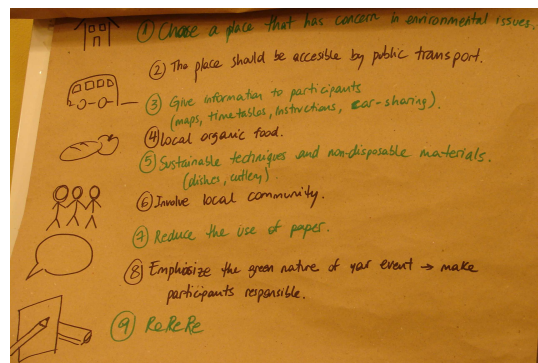 ① Chose a place that has concern in environmental issues.
② The place should be accesible by public transport.
③ Give information to participants
(maps, timetables, instructions, car-sharing).
④ local organic food.
⑤ Sustainable techniques and non-disposable materials.
(dishes, cutlery).
⑥ Involve local community.
⑦ Reduce the use of paper.
⑧ Emphasize the green nature of your event → make
participants responsible.
⑨ ReReRe